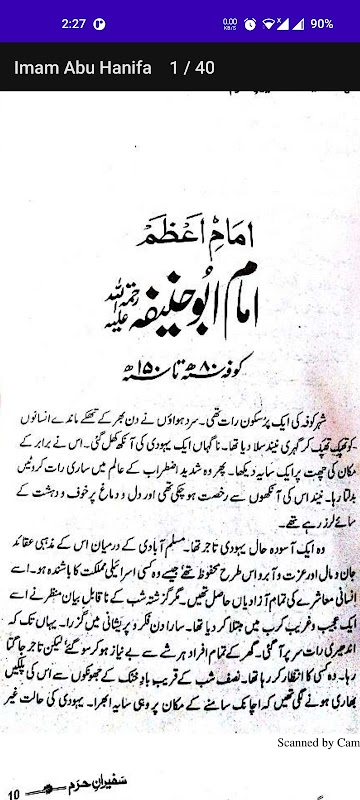 2:27
0.00
KB/S
90%
Imam Abu Hanifa 1 / 40
امامِ اَعظم
امام ابُو حنیفہ رحمۃ اللہ علیہ
کوفہ ۸۰ھ تا ۱۵۰ھ
شہر کوفہ کی ایک پرسکون رات تھی۔ سرد ہواؤں نے دن بھر کے تھکے ماندے انسانوں
کو تھپک تھپک کر گہری نیند سلا دیا تھا۔ ناگہاں ایک یہودی کی آنکھ کھل گئی۔ اس نے برابر کے
مکان کی چھت پر ایک سایہ دیکھا۔ پھر وہ شدید اضطراب کے عالم میں ساری رات کروٹیں
بدلتا رہا۔ نیند اس کی آنکھوں سے رخصت ہو چکی تھی اور دل و دماغ پر خوف و دہشت کے
سائے لرز رہے تھے۔
وہ ایک آسودہ حال یہودی تاجر تھا۔ مسلم آبادی کے درمیان اس کے مذہبی عقائد
جان و مال اور عزت و آبرو اس طرح محفوظ تھے جیسے وہ کسی اسرائیلی مملکت کا باشندہ ہو۔ اسے
انسانی معاشرے کی تمام آزادیاں حاصل تھیں۔ مگر گزشتہ شب کے ناقابل بیان منظر نے اسے
ایک عجیب و غریب کرب میں مبتلا کر دیا تھا۔ سارا دن فکر و پریشانی میں گزرا۔ یہاں تک کہ
اندھیری رات سر پر آ گئی۔ گھر کے تمام افراد ہر شے سے بے نیاز ہو کر سو گئے لیکن تاجر جاگتا
رہا۔ وہ کسی کا انتظار کر رہا تھا۔ نصف شب کے قریب باد خنک کے جھونکوں سے اس کی پلکیں
بھاری ہونے لگی تھیں کہ اچانک سامنے کے مکان پر وہی سایہ ابھرا۔ یہودی کی حالت غیر
Scanned by Cam
سفیرانِ حرم 10